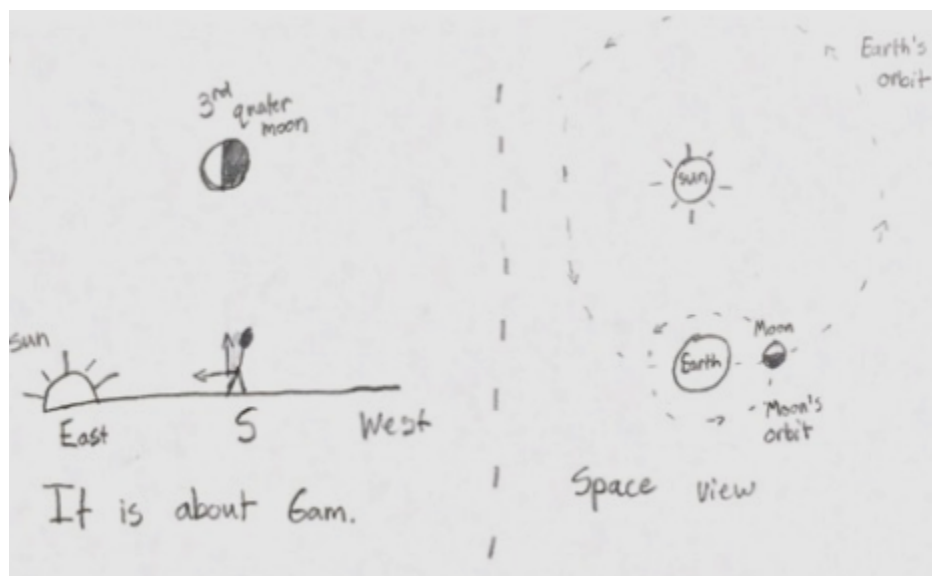 3rd quater
moon
sun
East
S
West
It is about 6am.
Earth's
orbit
sun
Moon
Earth
Moon's
orbit
Space view